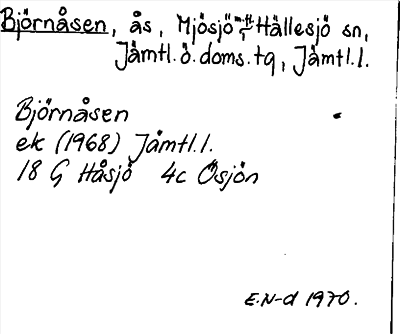 Björnåsen, ås, Mjösjö Hällesjö sn,
Jämtl.ö.doms.tg, Jämtl.l.
Björnåsen
ek (1968) Jämtl.l.
18 G Håsjö 4c Ösjön
E.N-d 1970.